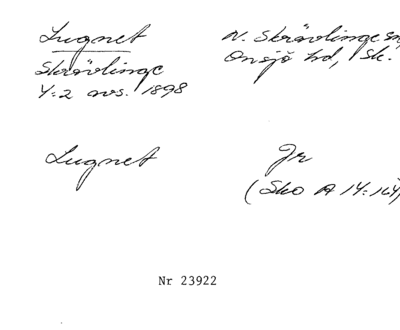 Lugnet
N. Skrävlinge sn
Onsjö hd, Sk.
Skrävlinge
4:2 avs. 1898
Lugnet
Jr
(Sko A 14:164)
Nr 23922